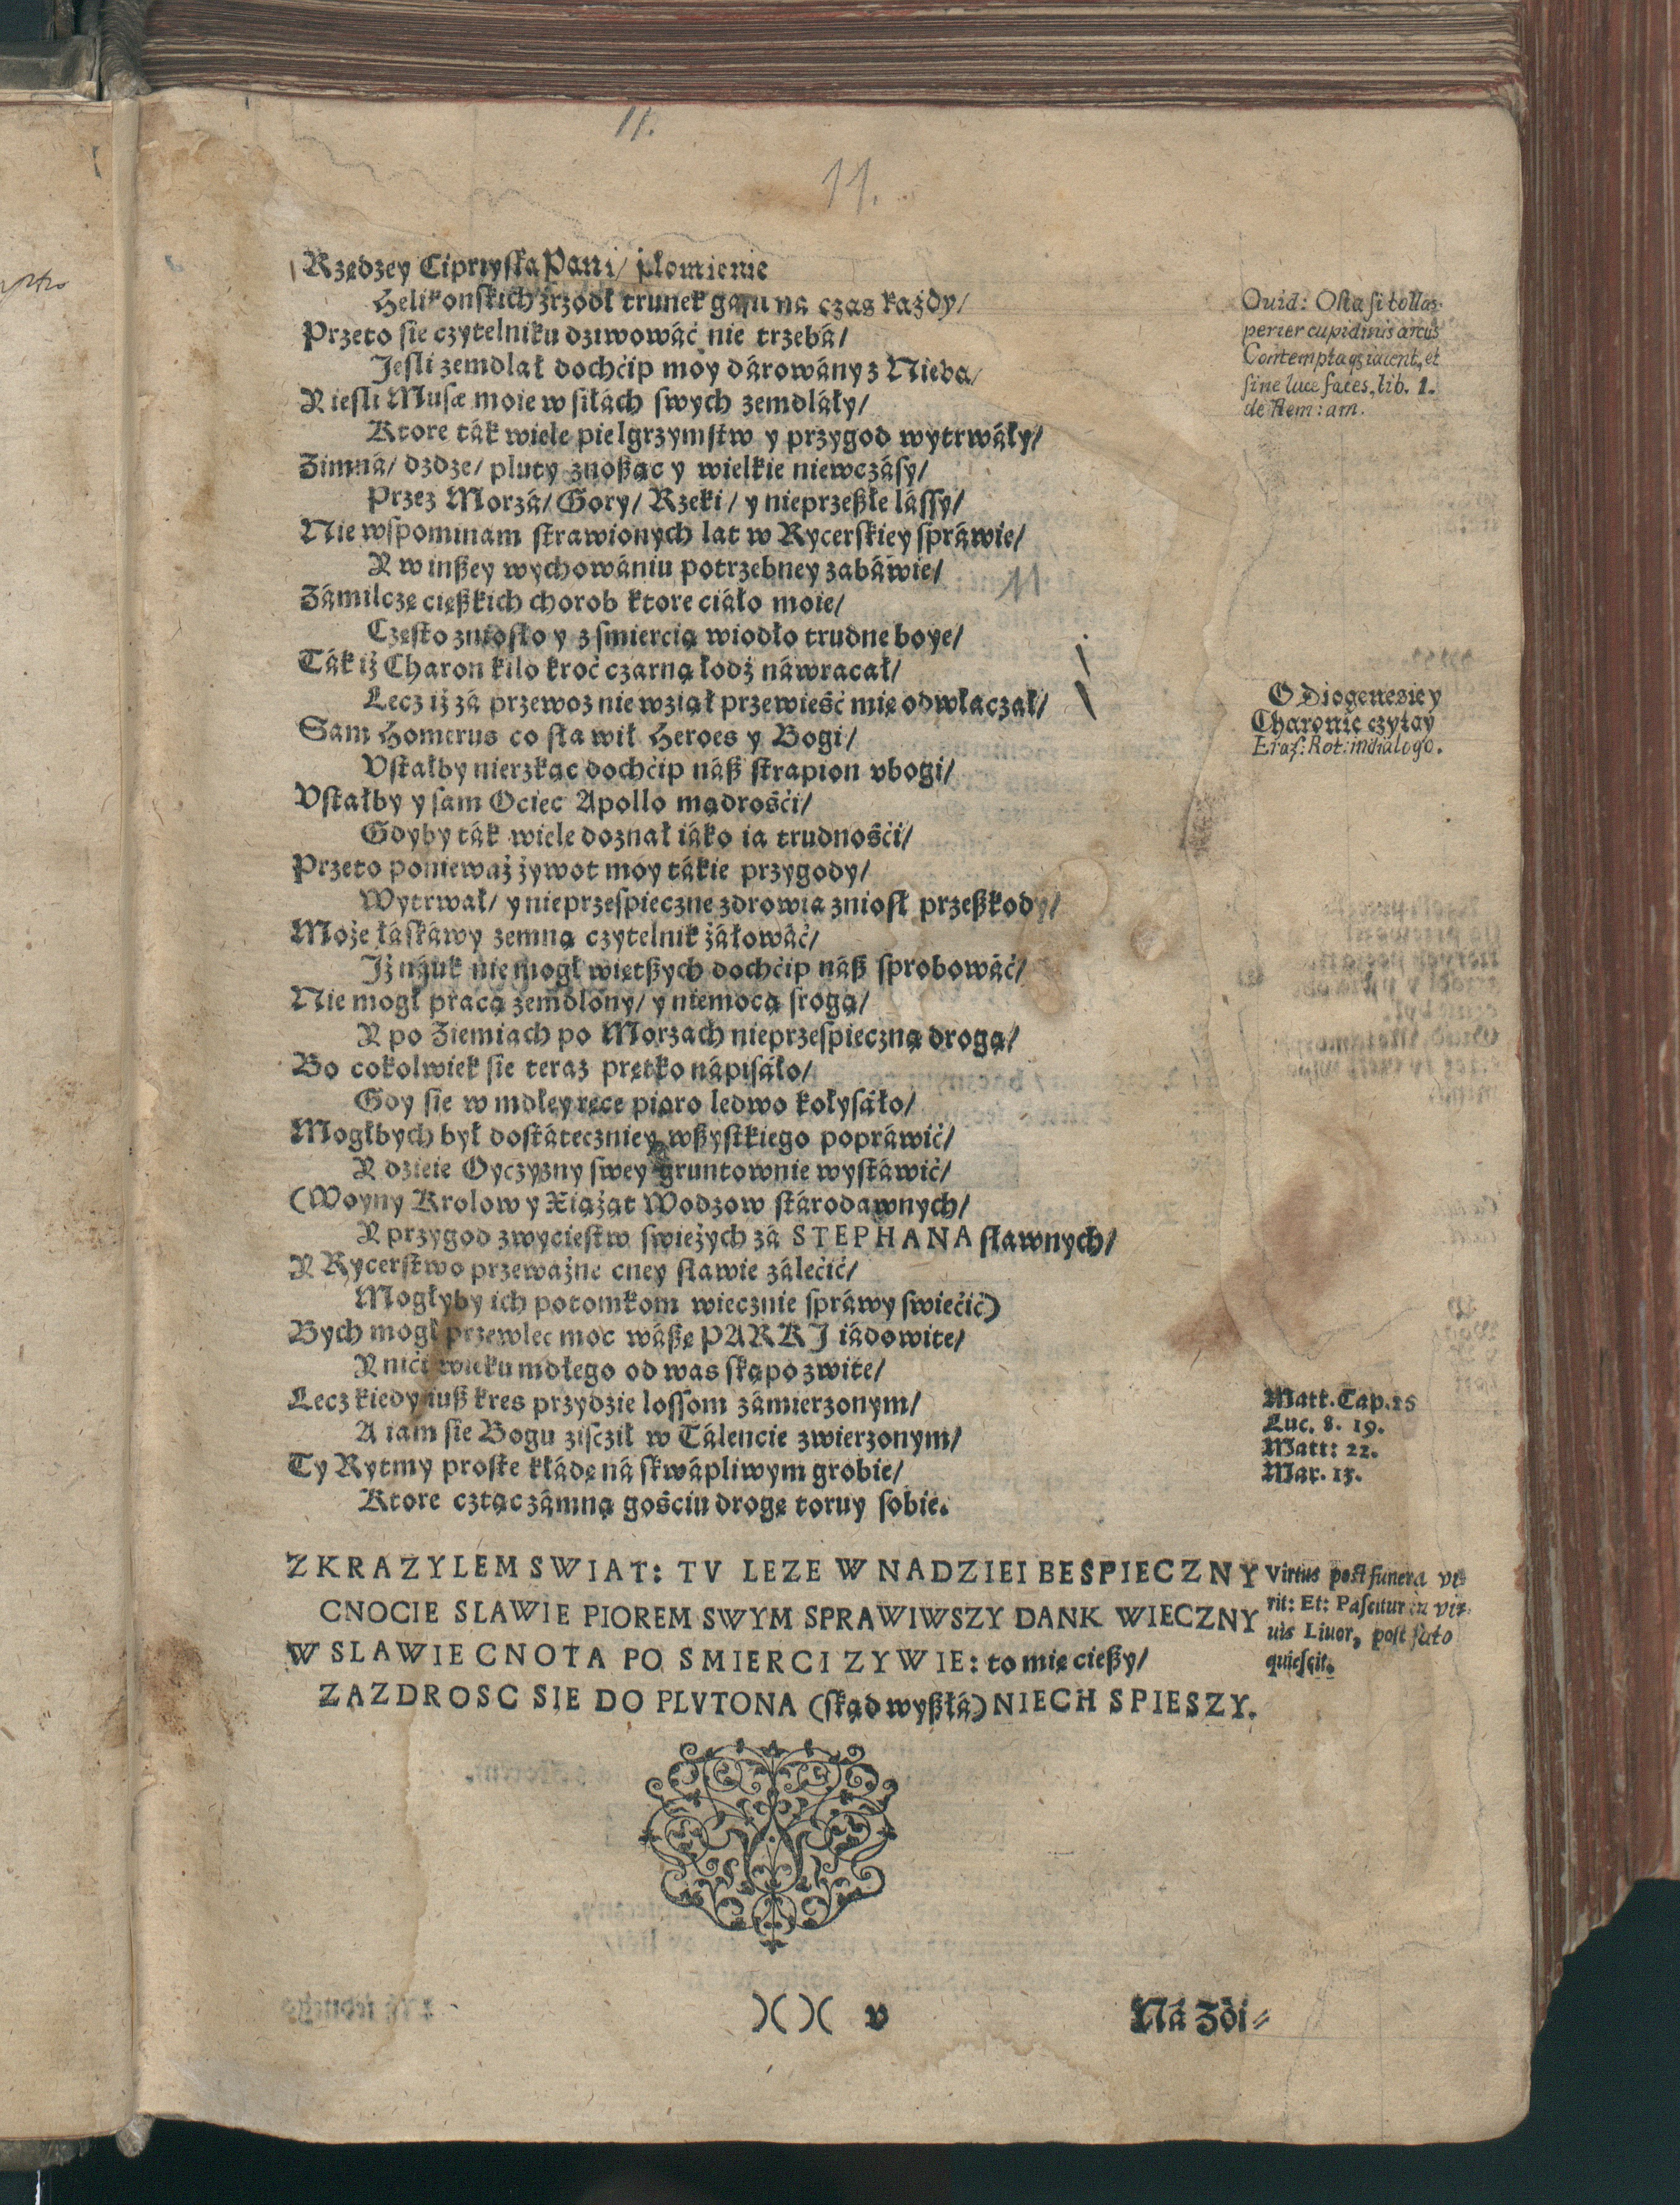 11.
11.
Rzędzey Cipryska Pani/ płomienie
Helikonskich źrzodł trunek gasu na czas każdy/
Przeto sie czytelniku dziwowáć nie trzebá/
Jesli zemdlał dochćip moy dárowány z Nieba/
Y iesli Musæ moie w siłách swych zemdláły/
Ktore ták wiele pielgrzymstw y przygod wytrwáły/
Zimná/ dżdże/ pluty znoßąc y wielkie niewczásy/
Przez Morzá/ Gory/ Rzeki/ y nieprzeßłe lássy/
Nie wspominam strawionych lat w Rycerskiey spráwie/
Y w inßey wychowániu potrzebney zabáwie/
Zámilczę cięßkich chorob ktore ciáło moie/
Często zniosło y z smiercią wiodło trudne boye/
Ták iż Charon kilo kroć czarną łodź náwracał/
Lecz iż zá przewoz nie wziął przewieść mię odwłaczał/
Sam Homerus co sławił Heroes y Bogi/
Vstałby nierzkąc dochćip náß strapion vbogi/
Vstałby y sam Ociec Apollo mądrośći/
Gdyby ták wiele doznał iáko ia trudnośći/
Przeto ponieważ żywot moy tákie przygody/
Wytrwał/ y nieprzespieczne zdrowia zniosł przeßkody/
Może łáskáwy zemną czytelnik żáłowáć/
Jż náuk nie mogł więtßych dochćip náß sprobowáć/
Nie mogł pracą zemdlony/ y niemocą srogą/
Y po Ziemiach po Morzach nieprzespieczną drogą/
Bo cokolwiek sie teraz prętko nápisáło/
Gdy sie w mdłey ręce pioro ledwo kołysáło/
Mogłbych był dostáteczniey wßystkiego popráwić/
Y dzieie Oyczyzny swey gruntownie wystáwić/
(Woyny Krolow y Xiążąt Wodzow stárodawnych/
Y przygod zwyciestw swieżych zá STEPHANA sławnych/
Y Rycerstwo przeważne cney sławie zálećić/
Mogłyby ich potomkom wiecznie spráwy swiećić)
Bych mogł przewlec moc wáßę PARKJ iádowite/
Y nići wieku mdłego od was skąpo zwite/
Lecz kiedy iuß kres przydzie lossom zámierzonym/
A iam sie Bogu ziscził w Tálencie zwierzonym/
Ty Rytmy proste kłádę ná skwápliwym grobie/
Ktore cztąc zámną gośćiu drogę toruy sobie.
Ouid: Ostia si tollas
perier cupidinis arcus
Contemptaqz iacent, et
sine luce faces, lib. 1.
de Rem: am.
O Diogenesie y
Charonie czytay
Eras: Rot: in dialogo.
Matt. Cap. 25
Luc. 8. 19.
Matt: 22.
Mar. 13.
ZKRAZYLEM SWIAT: TV LEZE W NADZIEI BESPIECZNY
CNOCIE SLAWIE PIOREM SWYM SPRAWIWSZY DANK WIECZNY
W SLAWIE CNOTA PO SMIERCI ZYWIE: to mię cießy/
ZAZDROSC SIE DO PLVTONA (skąd wyßłá) NIECH SPIESZY.
Virtus post funera vi-
rit: Et: Pascitur in vi-
uis Liuor, post fato
quiescit.
)( )( v
Ná Zdi-